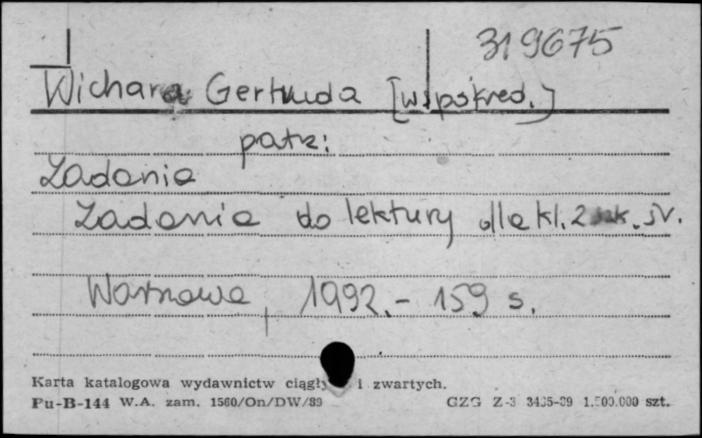 319675
Wichara Gertruda [współred.]
patrz:
Zadania
Zadania do lektury dla kl. 2 szk. śr.
Warszawa, 1992.- 159 s.
Karta katalogowa wydawnictw i zwartych.
Pu-B-144 W.A. zam. 1560/On/DW/89 GZG Z-3 1.500.000 szt.